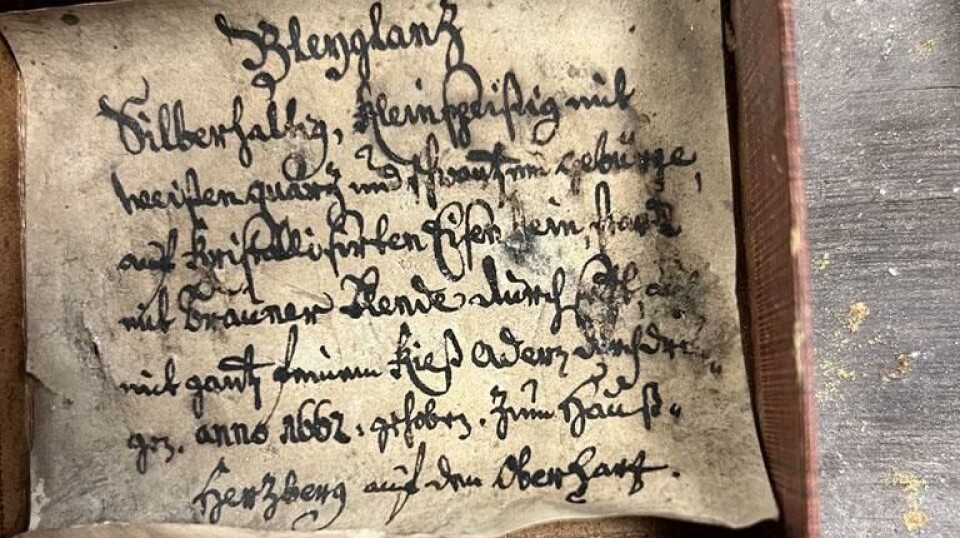 Bleyglantz
Silberhaltig, kleinspeisig mit
weißen quarz und schwartzem gebürge,
auf kristallisirten Eisenstein, starck
mit brauner Blende durchsetzt, auch
mit gantz feinem Kieß Adern durchdrun„
gen. anno 1662. gehoben. Zum Hauß„
Herzberg auf den Oberhartz.